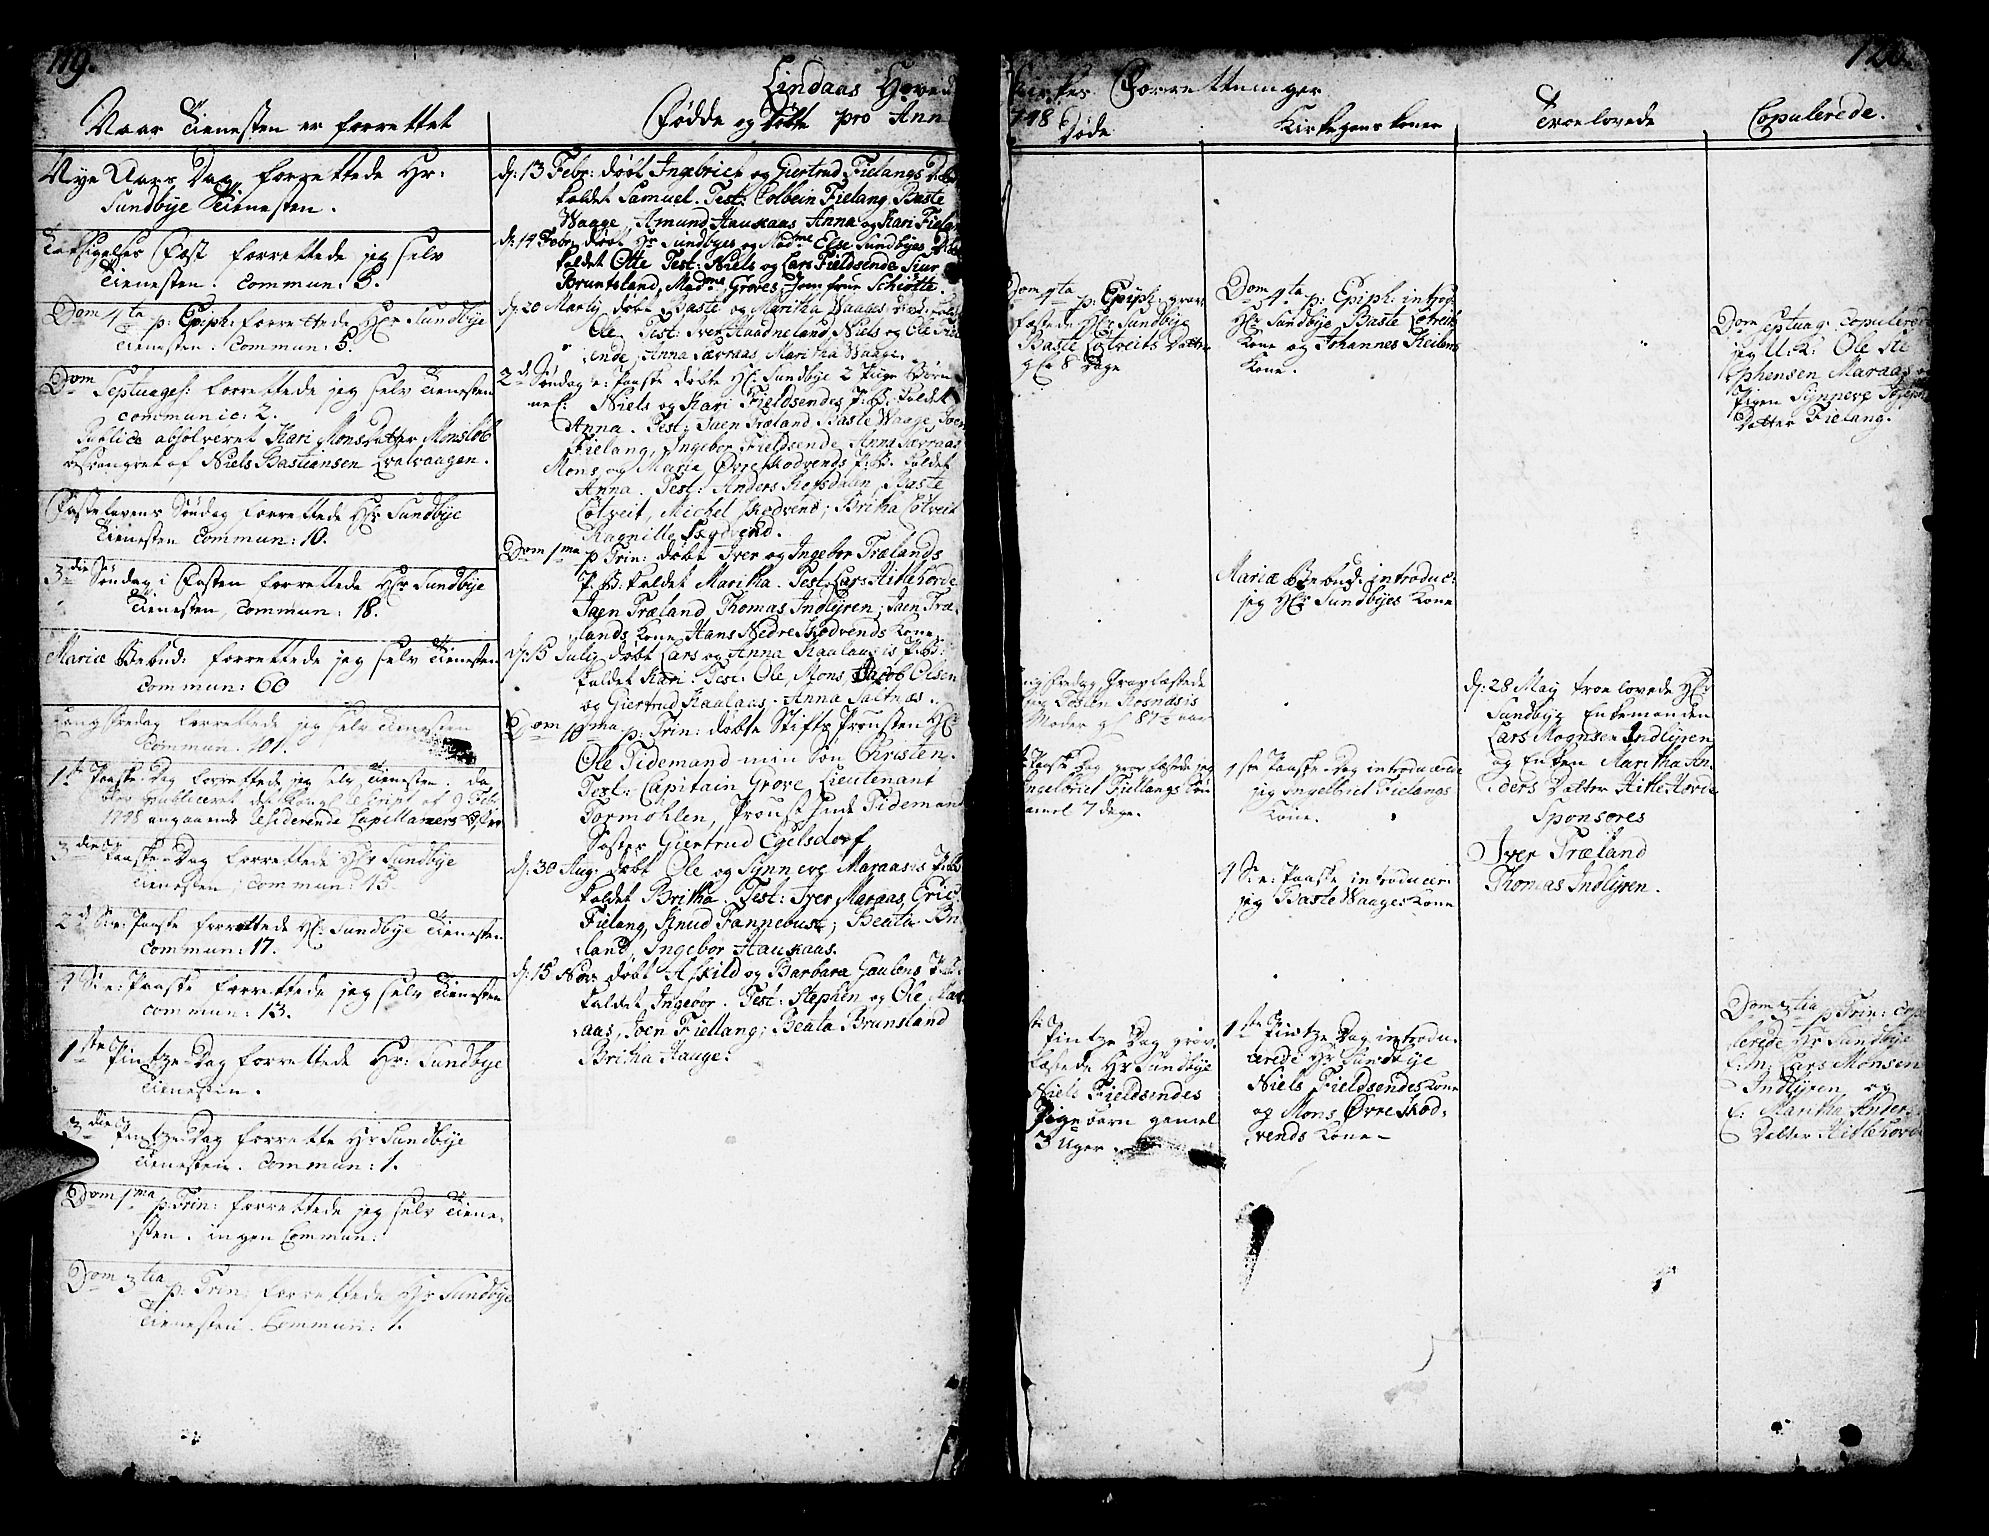 119.
Lindaas Hoved
Naar Tienesten er forrettet
Fødde og Døbte pro Ann
Nye Aars Dag forrettede Hr:
Sundbye Tienesten.
Taksigelses Fest forrettede jeg selv
Tienesten. Commun: 5.
Dom 4ta p: Epiph: forrettede Hr Sundbye
Tienesten. Commun: 5.
Dom Septuages: forrettede jeg selv Tienesten
communic: 2.
Publice absolveret Kari Monsdatter Monsløb
besvangret af Niels Bastiansen Qvalvaagen.
Fastelavens Søndag forrettede Hr Sundbye
Tienesten Commun: 10.
3die Søndag i Fasten forrettede Hr Sundbye
Tienesten, Commun: 18.
Mariæ Bebud: forrettede jeg selv Tienesten
Commun: 60
Langfredag forrettede jeg selv Tienesten
Commun: 101.
1ste Paaske Dag forrettede jeg selv Tienesten. da
blev publiceret det Kongl: Rescript af 9 Febr
1748 angaaende residerende Capellaners
3die Paaske Dag forrettede Hr Sundbye
Tienesten, Commun: 15.
2d S: e: Paaske forrettede Hr Sundbye Tienesten
Commun: 17.
4 S: e: Paaske forrettede jeg selv Tienesten
Commun: 13.
1ste Pintze Dag forrettede Hr: Sundbye
Tienesten.
3die Pintze Dag forrette Hr Sundbye
Tienesten. Commun: 1.
Dom 1ma p: Trin: forrettede jeg selv Tiene-
sten. ingen Commun:
Dom 3tia p: Trin: forrettede Hr Sundbye
Tienesten. Commun: 1.
d: 13 Febr: døbt Ingebrict og Giertrud Fielangs
kaldet Samuel. Test: Colbein Fielang, Baste
Waage, Amund Haukaas, Anna og Kari Fielan
d: 14 Febr: døbt Hr Sundbyes og Madme Else Sundbyes
kaldet Otte Test: Niels og Lars Fieldsende Siur
Bruntsland, Madme Groves, Jomfrue Schiøtte.
d: 20 Martij døbt Baste og Maritha Waages
Ole. Test: Iver Haadneland, Niels og Ole
ende, Anna Særraas, Maritha Waage.
2d Søndag e: Paaske døbte Hr Sundbye 2 Pige Børn
neml: Niels og Kari Fieldsendes P: B: kaldet
Anna. Test: Jaen Træland Baste Waage, Joen
Fielang, Ingebor Fieldsende, Anna Særraas
Mons og Maria Øvre Kodvends P: B: kaldet
Anna. Test: Anders Refsdaan, Baste
Cotveit, Michel Kodvend; Britha Cotveit
Ragnille
Dom 1ma p Trin: døbt Iver og Ingebor Trælands
P: B: kaldet Maritha. Test: Lars Hitlehorde
Jaen Træland, Thomas Indlyren; Jaen Træ-
lands Kone Hans Nedre Kodvends Kone
d: 15 Julij døbt Lars og Anna Kaalaasis P: B:
kaldet Kari. Test: Ole, Mons Jacob Olsen
og Giertrud Kaalaas. Anna Saltnæs.
Dom 10ma p: Trin: døbte Stifts Provsten Hr
Ole Tidemand min Søn Christen.
Test: Capitain Grove Lieutenant
Tormohlen, Provstinde Tidemand
Søster Giertrud Egelsdorf
d: 30 Aug: døbt Ole og Synneve Maraas's
kaldet Britha. Test: Iver Maraas, Eric
Fielang, Knud Fannebust; Beata
land, Ingebor Haukaas.
d: 15 Nov: døbt Askild og Barbara Gaulens
kaldet Ingebor. Test: Stephen og Ole Mar
aas, Joen Fiellang; Beata Brunsland
Britha Hauge:
120.
Kirkes Forrettninger
748
Døde
Kirkegangs koner
Troelovede
Copulerede.
Dom 4ta p: Epiph: grav
fæstede Hr Sundbye
Baste Cotveits Datter
gl 8 Dage
Langfredag gravfæstede
Moder gl 87½ aar
Paaske Dag gravfæstede jeg
Ingebrict Fiellangs Søn
gamel 7 dage.
Pintze Dag grav-
fæstede Hr Sundbye
Niels Fieldsendes
Pigebarn gamel
3 Uger.
Dom 4ta p: Epiph: introd
Hr Sundbye Baste Cotveits
Kone og Johannes
Kone.
Mariæ Bebud: introduc:
jeg Hr Sundbyes Kone
1ste Paaske Dag introducerede
jeg Ingelbrict Fielangs
Kone.
4 S: e: Paaske introducer:
jeg Baste Waages Kone
1ste Pintze Dag introdu-
cerede Hr Sundbye
Niels Fieldsendes Kone
og Mons Øvre Kod-
vends Kone-
d: 28 Maij troelovede Hr
Sundbye Enkemanden
Lars Mognsen Indlyren
og Enken Maritha An-
ders Datter Hitlehorde
Sponsores
Iver Træland
Thomas Indlyren.
Dom Septuag: copulerede
jeg U: K: Ole Ste
phensen Maraas og
Pigen Synneve
Datter Fielang.
Dom 3tia p: Trin: copu
lerede Hr Sundbye
E: M: Lars Monsen
Indlyren og
E: Maritha Anders
Datter Hitlehorde